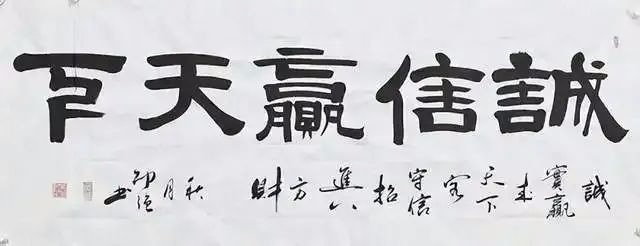 誠信贏天下
誠實贏来天下客守信招進八方財秋月书